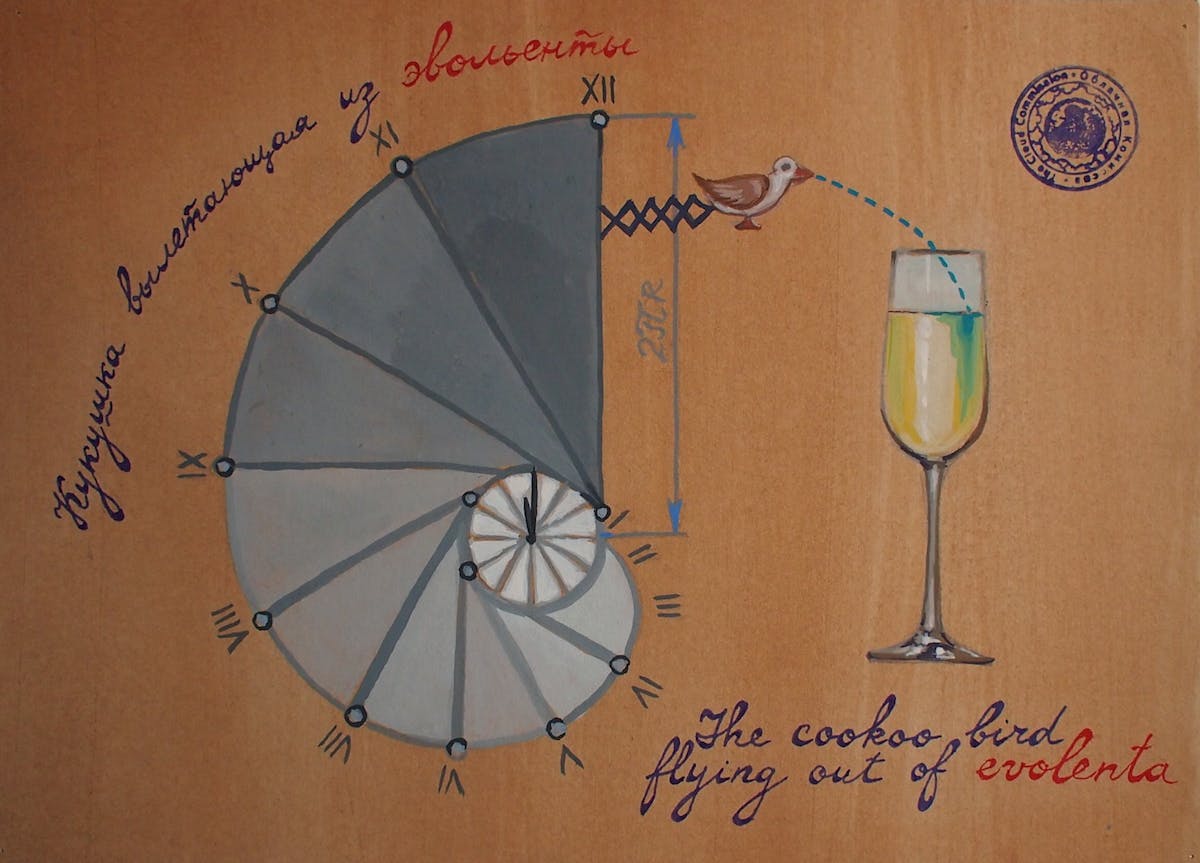 Кукушка вылетающая из эвольенты
XII
XI
X
IX
VIII
VII
VI
V
IV
III
II
I
2πR
The Cloud Commission • Облачная Комиссия •
The cookoo bird
flying out of evolenta